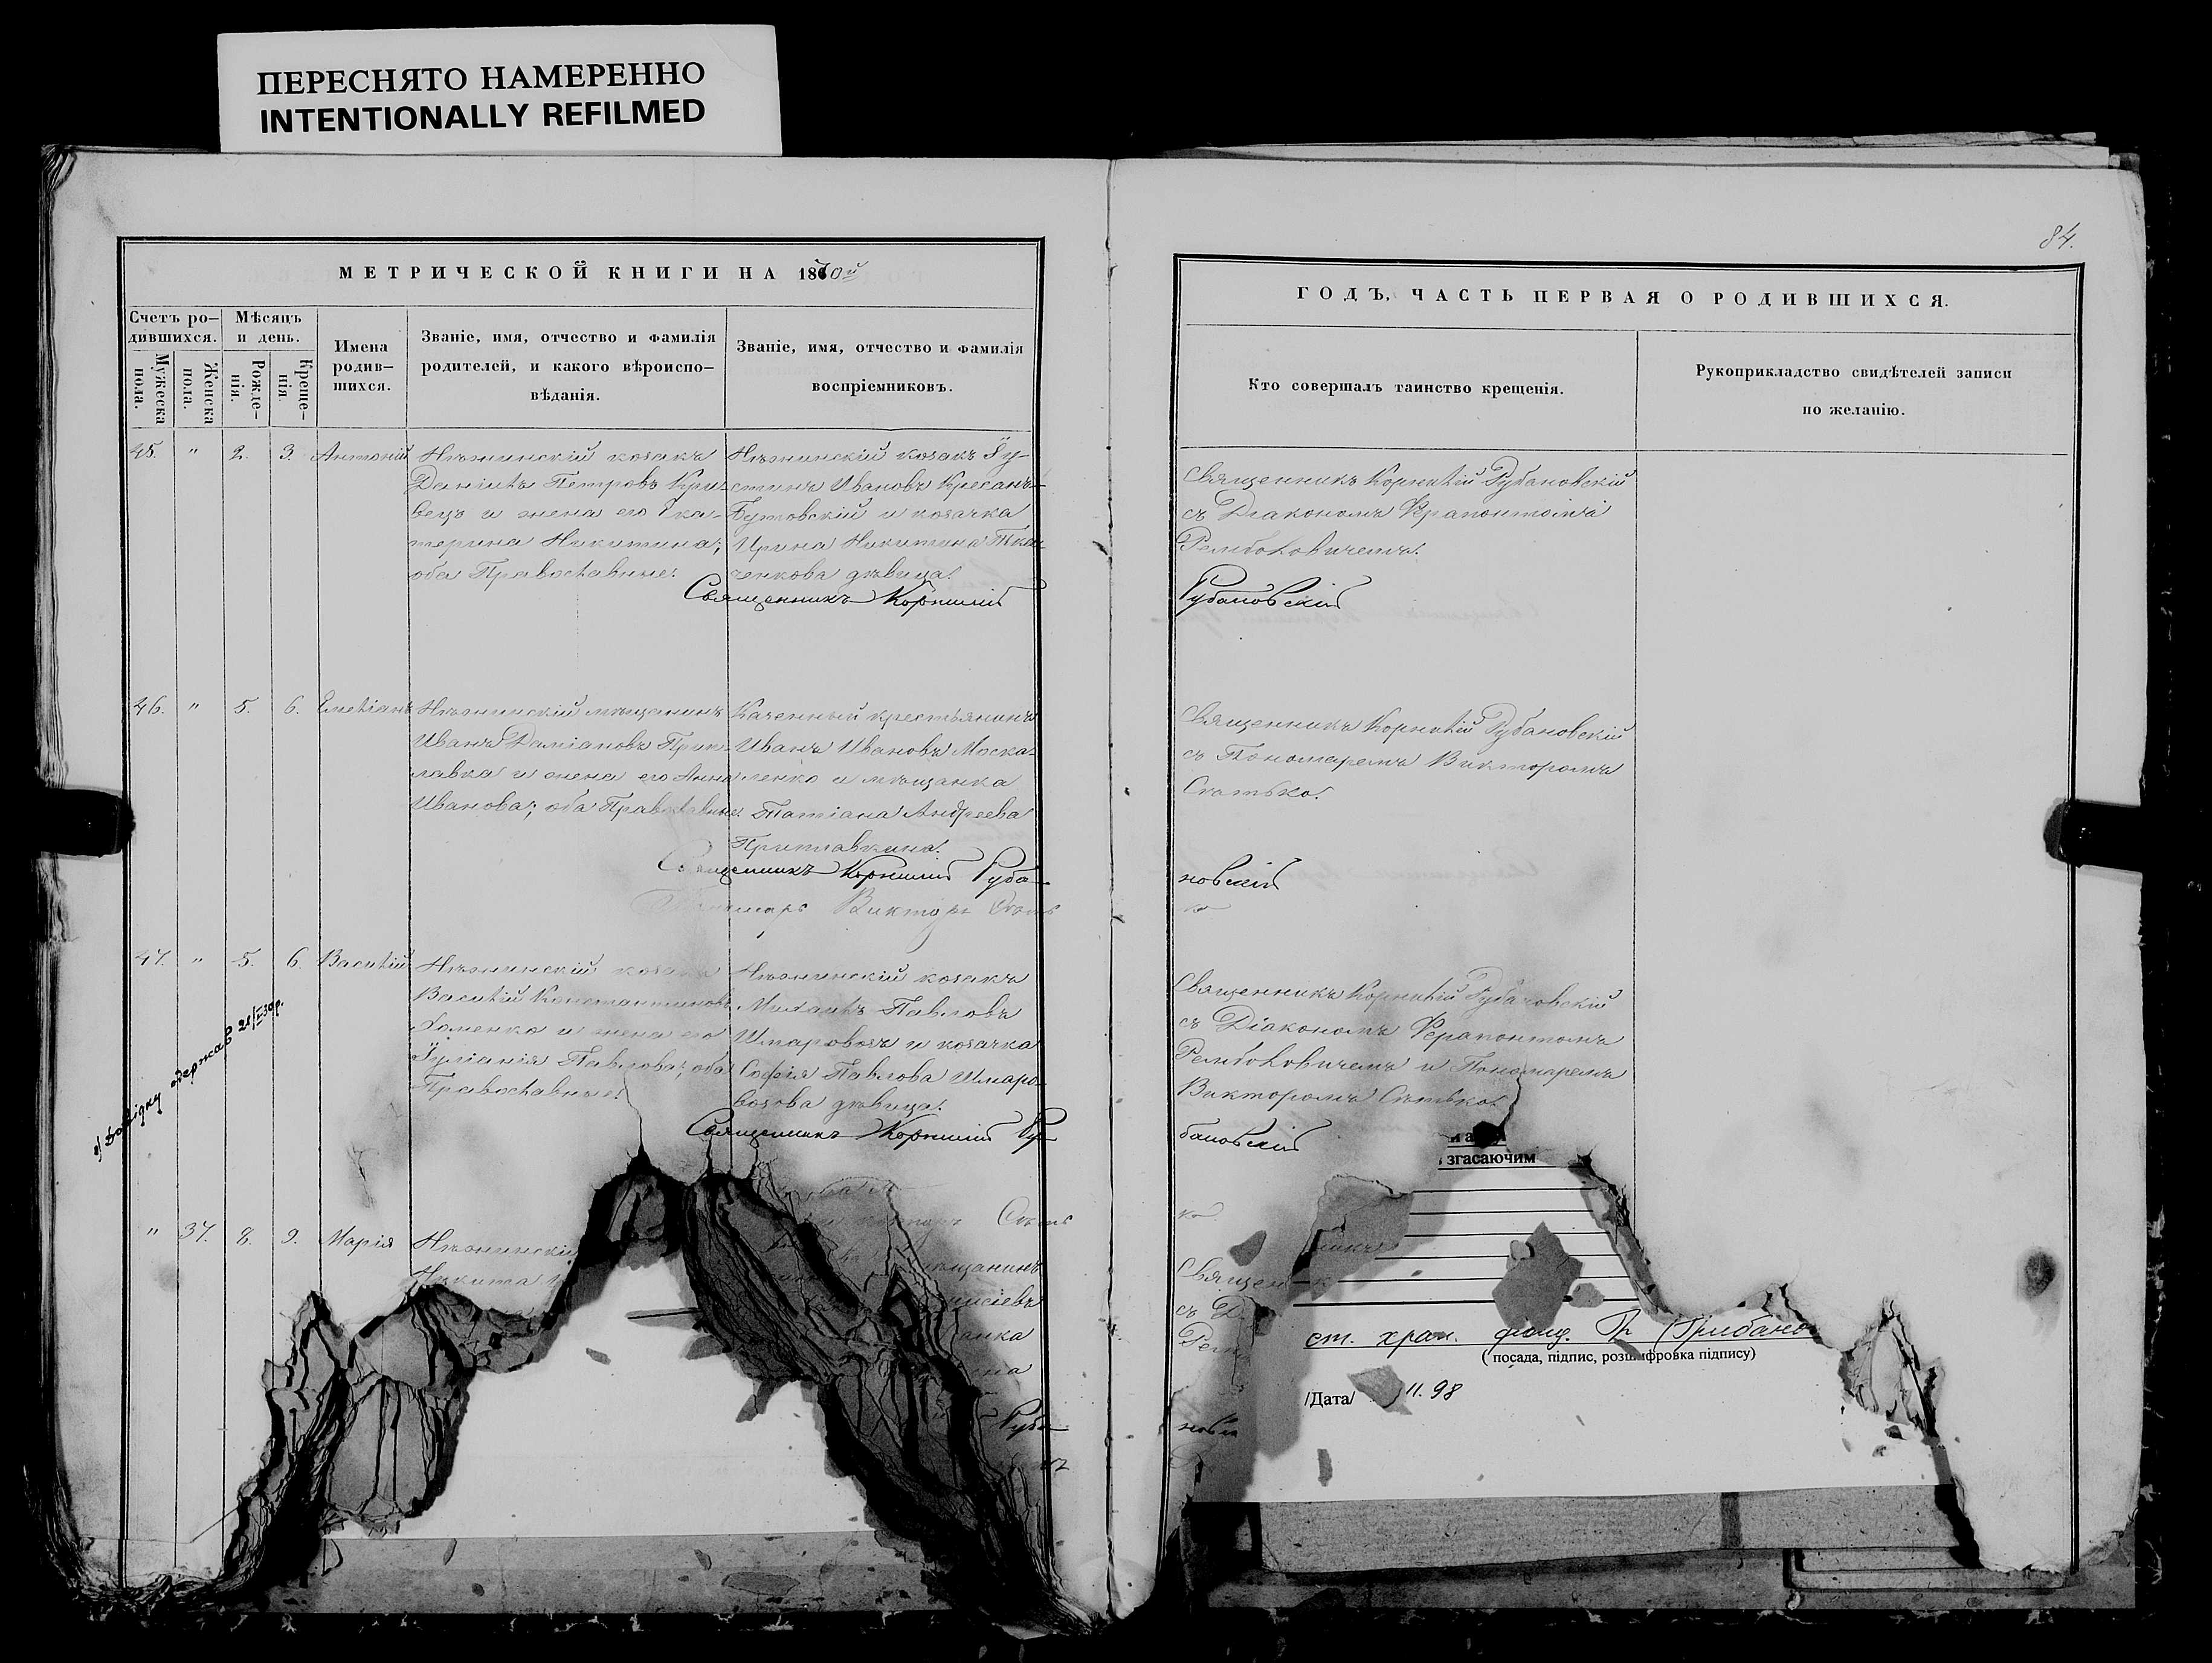 ПЕРЕСНЯТО НАМЕРЕННО
INTENTIONALLY REFILMED
84.
МЕТРИЧЕСКОЙ КНИГИ НА 1870й
Счетъ ро-
дившихся.
Мужеска
пола.
Женска
пола.
Мѣсяцъ
и день.
Рожде-
нія.
Креще-
нія.
Имена
родив-
шихся.
Званіе, имя, отчество и фамилія
родителей, и какого вѣроиспо-
вѣданія.
Званіе, имя, отчество и фамилія
воспріемниковъ.
ГОДЪ, ЧАСТЬ ПЕРВАЯ О РОДИВШИХСЯ.
Кто совершалъ таинство крещенія.
Рукоприкладство свидѣтелей записи
по желанію.
45. " 2. 3. Антоній
Нѣжинскій козакъ
Даніилъ Петровъ Кри-
вецъ и жена его Ека-
терина Никитина;
оба Православные.
Нѣжинскій козакъ Іу-
стинъ Ивановъ Кресанъ-
Бутовскій и козачка
Ирина Никитина Тка-
ченкова дѣвица.
Священникъ Корнилій
Священникъ Корнилій Рубановскій
съ Діакономъ Ферапонтомъ
Ремболовичемъ.
Рубановскій
46. " 5. 6. Емеліанъ
Нѣжинскій мѣщанинъ
Иванъ Даміановъ При-
лавка и жена его Анна
Иванова; оба Православные.
Казенный крестьянинъ
Иванъ Ивановъ Моска-
ленко и мѣщанка
Татіана Андреева
Священникъ Корнилій Руба-
Пономарь Викторъ
Священникъ Корнилій Рубановскій
съ Пономаремъ Викторомъ
новскій
ко
47. " 5. 6. Василій
Нѣжинскій козакъ
Василій Константиновъ
Хоменко и жена его
Іуліанія Павлова; оба
Православные.
Нѣжинскій козакъ
Михаилъ Павловъ
Шмаровозъ и козачка
Софія Павлова Шмаро-
возова дѣвица.
Священникъ Корнилій Ру-
Священникъ Корнилій Рубановскій
съ Діакономъ Ферапонтомъ
Ремболовичемъ и Пономаремъ
Викторомъ
бановскій
довідку одержав
ко
" 37. 8. 9. Марія
Нѣжинскій
Никита
мѣщанинъ
Руба-
Священ
съ Д
Рем
новск
згасаючим
ст. хран. фонд.
(посада, підпис, розшифровка підпису)
/Дата/ 11.98